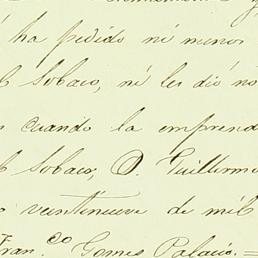 ha pedido ni menos
Sobaco, ni les dió no
cuando la emprend
Sobaco; D. Guillermo
veintinueve de mil
Fran.co Gomes Palacio. =